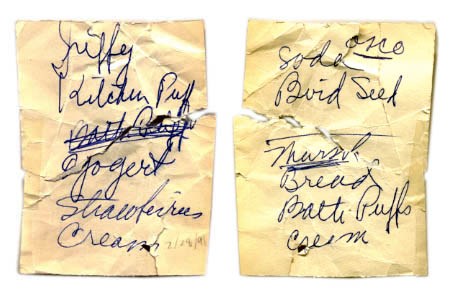 Jiffy
Kitchen Puff
Yogert
Strawberries
Cream 2/28/91
Soda
Bird Seed
Marsh
Bread
Bath Puffs
cream